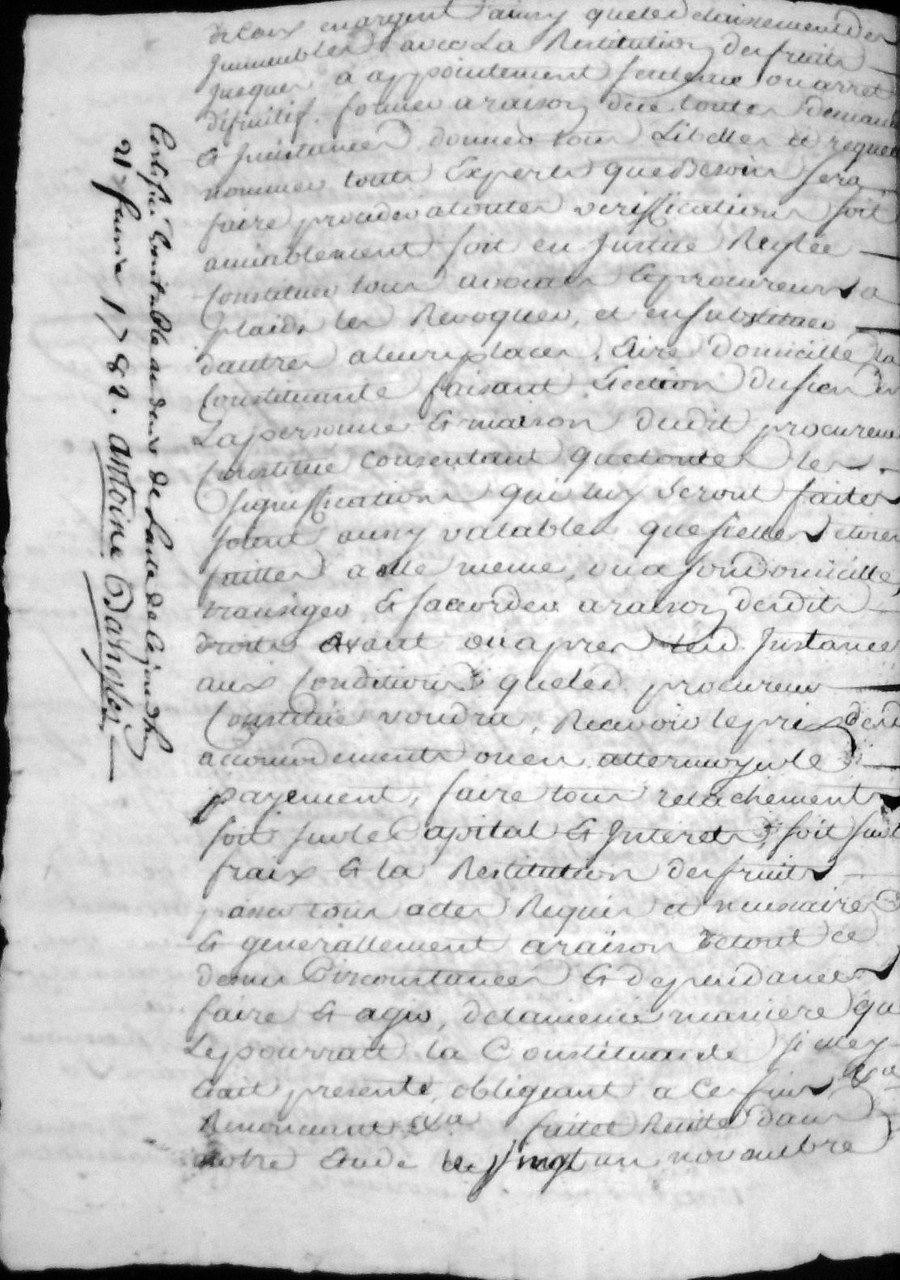 en argent aussy que le delaissement des
Immeubles avec La Restitution des fruits
jusques a appointement sentence ou arret
difinitif. former a raison de ce toutes demand
& Instances, donner tous Libelles et reque
nommer touts Experts que Besoin sera
faire proceder a toutes veriffications soit
amiablement soit en Justice Reglée
Constituer tous avocats & procureurs a
plaids les Revoquer, et en substituer
dautres a leurs places, Elire domicille la
Constituante faisant Election du sien en
La personne & maison dudit procureur
Constitué consentant que toutes les
signiffications qui luy seront faites
soient aussy valables que si elles etoient
faittes a elle meme, ou a son Domicille,
transiger & saccorder a raison desdits
droits avant ou apres lad. Instance
aux Conditions que led. procureur
Constitué voudra, Recevoir le prix desd
accomodements ou en attermoyer le
payement, faire tous relachements
soit sur le Capital & Interets, soit sur l
fraix & la Restitution des fruits
passer tous actes Requis et necessaires
& generallement a raison de tout ce
dessus Circonstances & dependances
faire & agir, de la meme maniere que
Le pourrait la Constituante si elle y
etait presente, obligeant a Ces fins
Renoncant &a fait et Recitté dans
notre Etude le vingt un novembre
Certiffié veritable au deux de
21 fevrier 1782. antoine